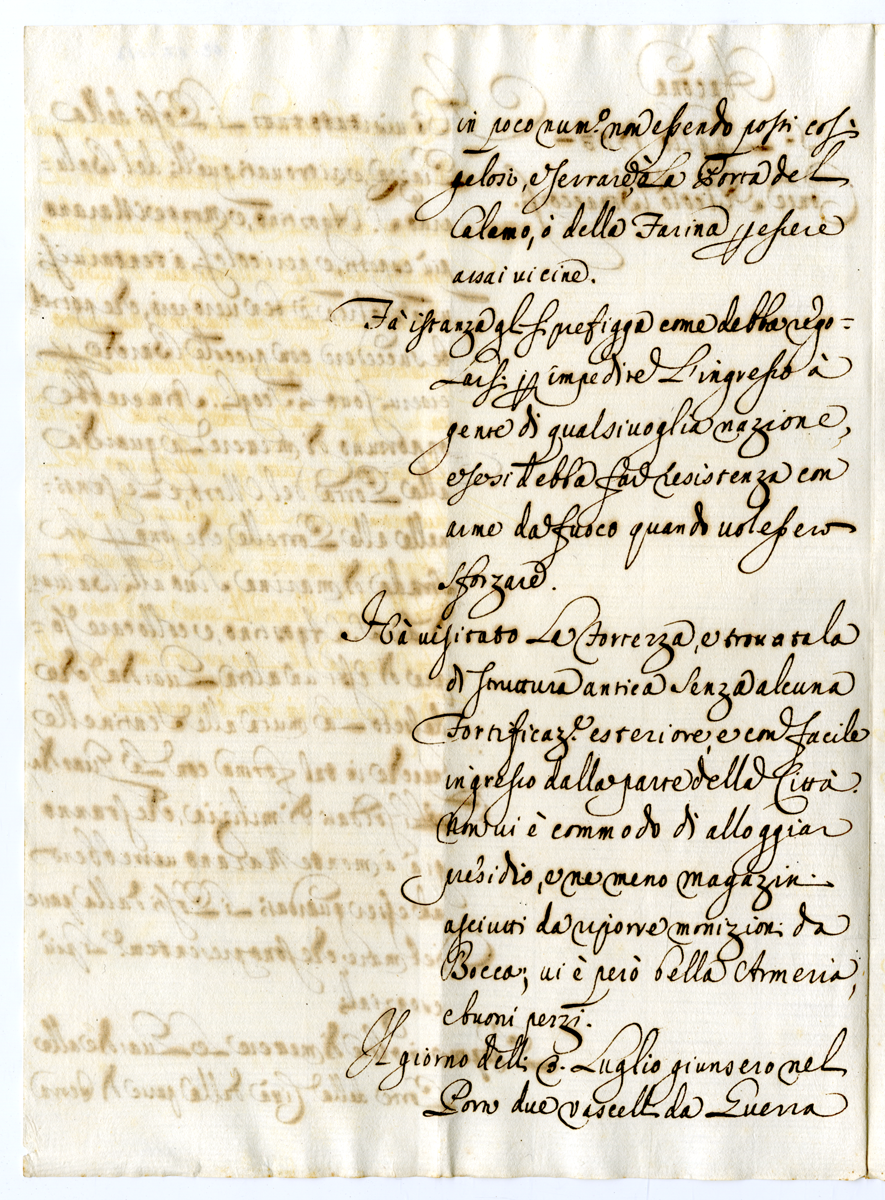 in poco num.o non essendo posti così
gelosi, e serrare la Porta del
Calamo, ò della Farina p essere
assai vicine.
Fà istanza gl. si prefigga come debba rego=
larsi p impedire l'ingresso à
gente di qualsivoglia nazione,
e se si debba far resistenza con
arme da fuoco quando volessero
sforzare.
Hà visitato la Fortezza, e trovatala
di struttura antica senza alcuna
Fortificaz.e esteriore, e con facile
ingresso dalla parte della Città.
Non vi è commodo di alloggiar
presidio, e ne meno magazin.
asciutti da riporre monizion. da
Bocca; vi è però bella Armeria,
e buoni pezzi.
Il giorno delli 3. Luglio giunsero nel
Porto due vascelli da Guerra